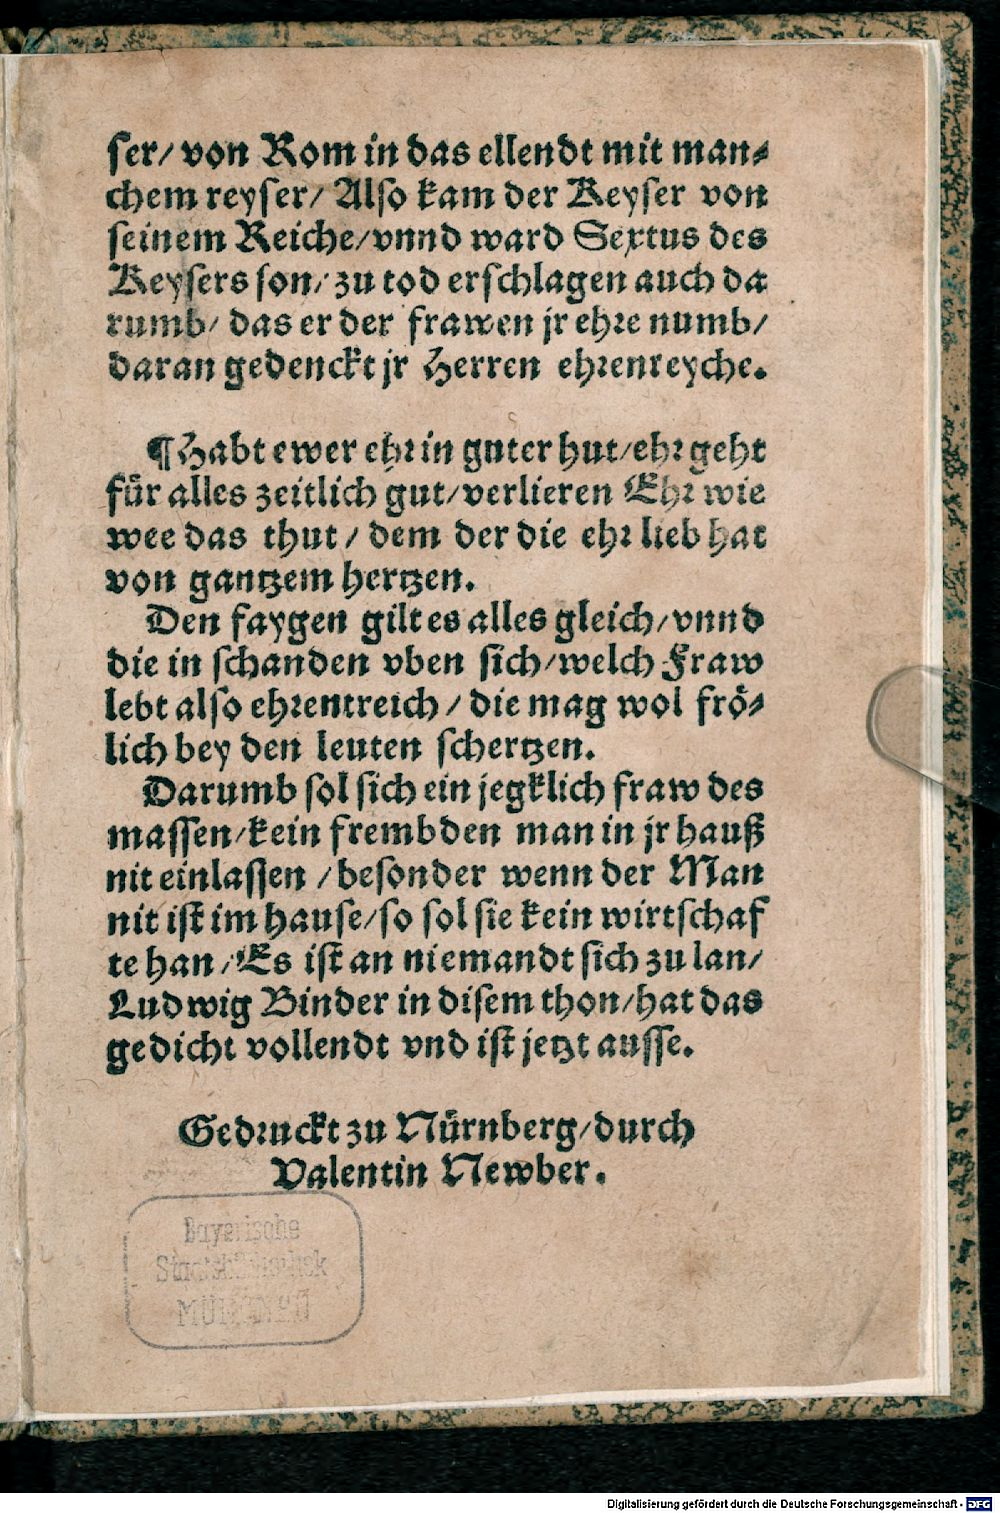 ser/ von Rom in das ellendt mit man⸗
chem reyser/ Also kam der Keyser von
seinem Reiche/ vnnd ward Sextus des
Keysers son/ zu tod erschlagen auch da
rumb/ das er der frawen jr ehre numb/
daran gedenckt jr Herren ehrenreyche.
¶ Habt ewer ehr in guter hut/ ehr geht
für alles zeitlich gut/ verlieren Ehr wie
wee das thut/ dem der die ehr lieb hat
von gantzem hertzen.
Den faygen gilt es alles gleich/ vnnd
die in schanden vben sich/ welch Fraw
lebt also ehrentreich/ die mag wol frö⸗
lich bey den leuten schertzen.
Darumb sol sich ein jegklich fraw des
massen/ kein frembden man in jr hauß
nit einlassen/ besonder wenn der Man
nit ist im hause/ so sol sie kein wirtschaf
te han/ Es ist an niemandt sich zu lan/
Ludwig Binder in disem thon/ hat das
gedicht vollendt vnd ist jetzt ausse.
Gedruckt zu Nürnberg/ durch
Valentin Newber.
Bayerische
Staatsbibliothek
MÜNCHEN
Digitalisierung gefördert durch die Deutsche Forschungsgemeinschaft - DFG